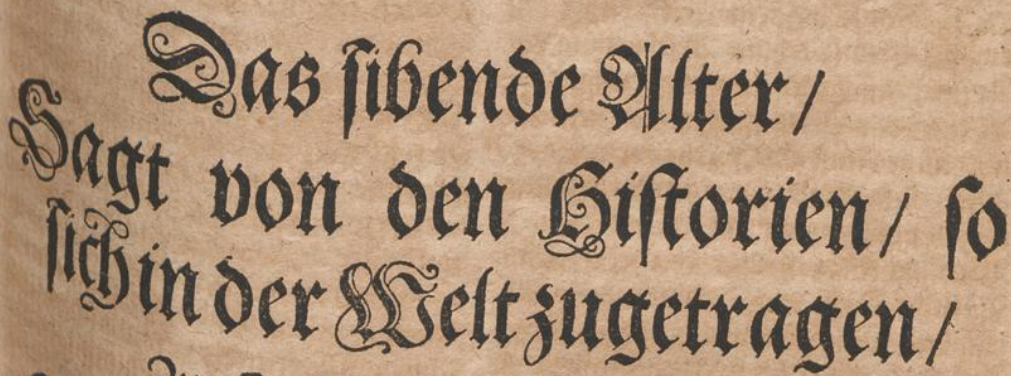 Das ſibende Alter/
Sagt von den Hiſtorien/ ſo
ſich in der Welt zugetragen/